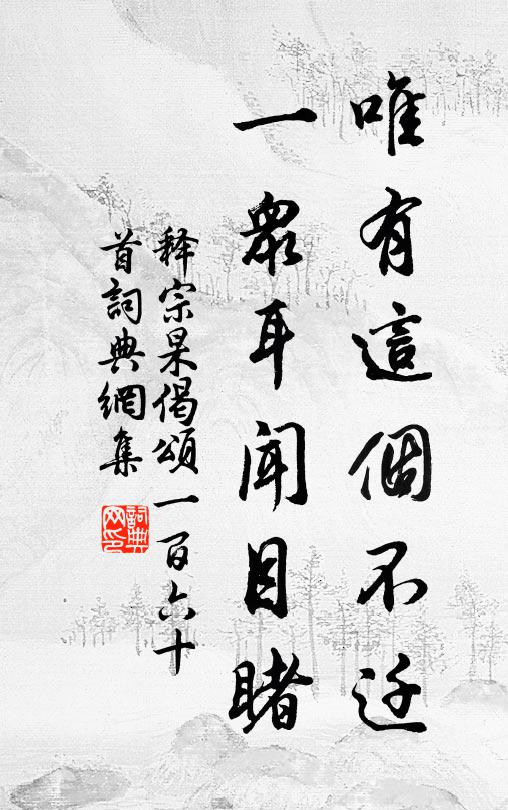 唯有這個不迁
一衆耳聞目睹
释宗杲偈頌一百六十
首詞典網集
詞典
网印